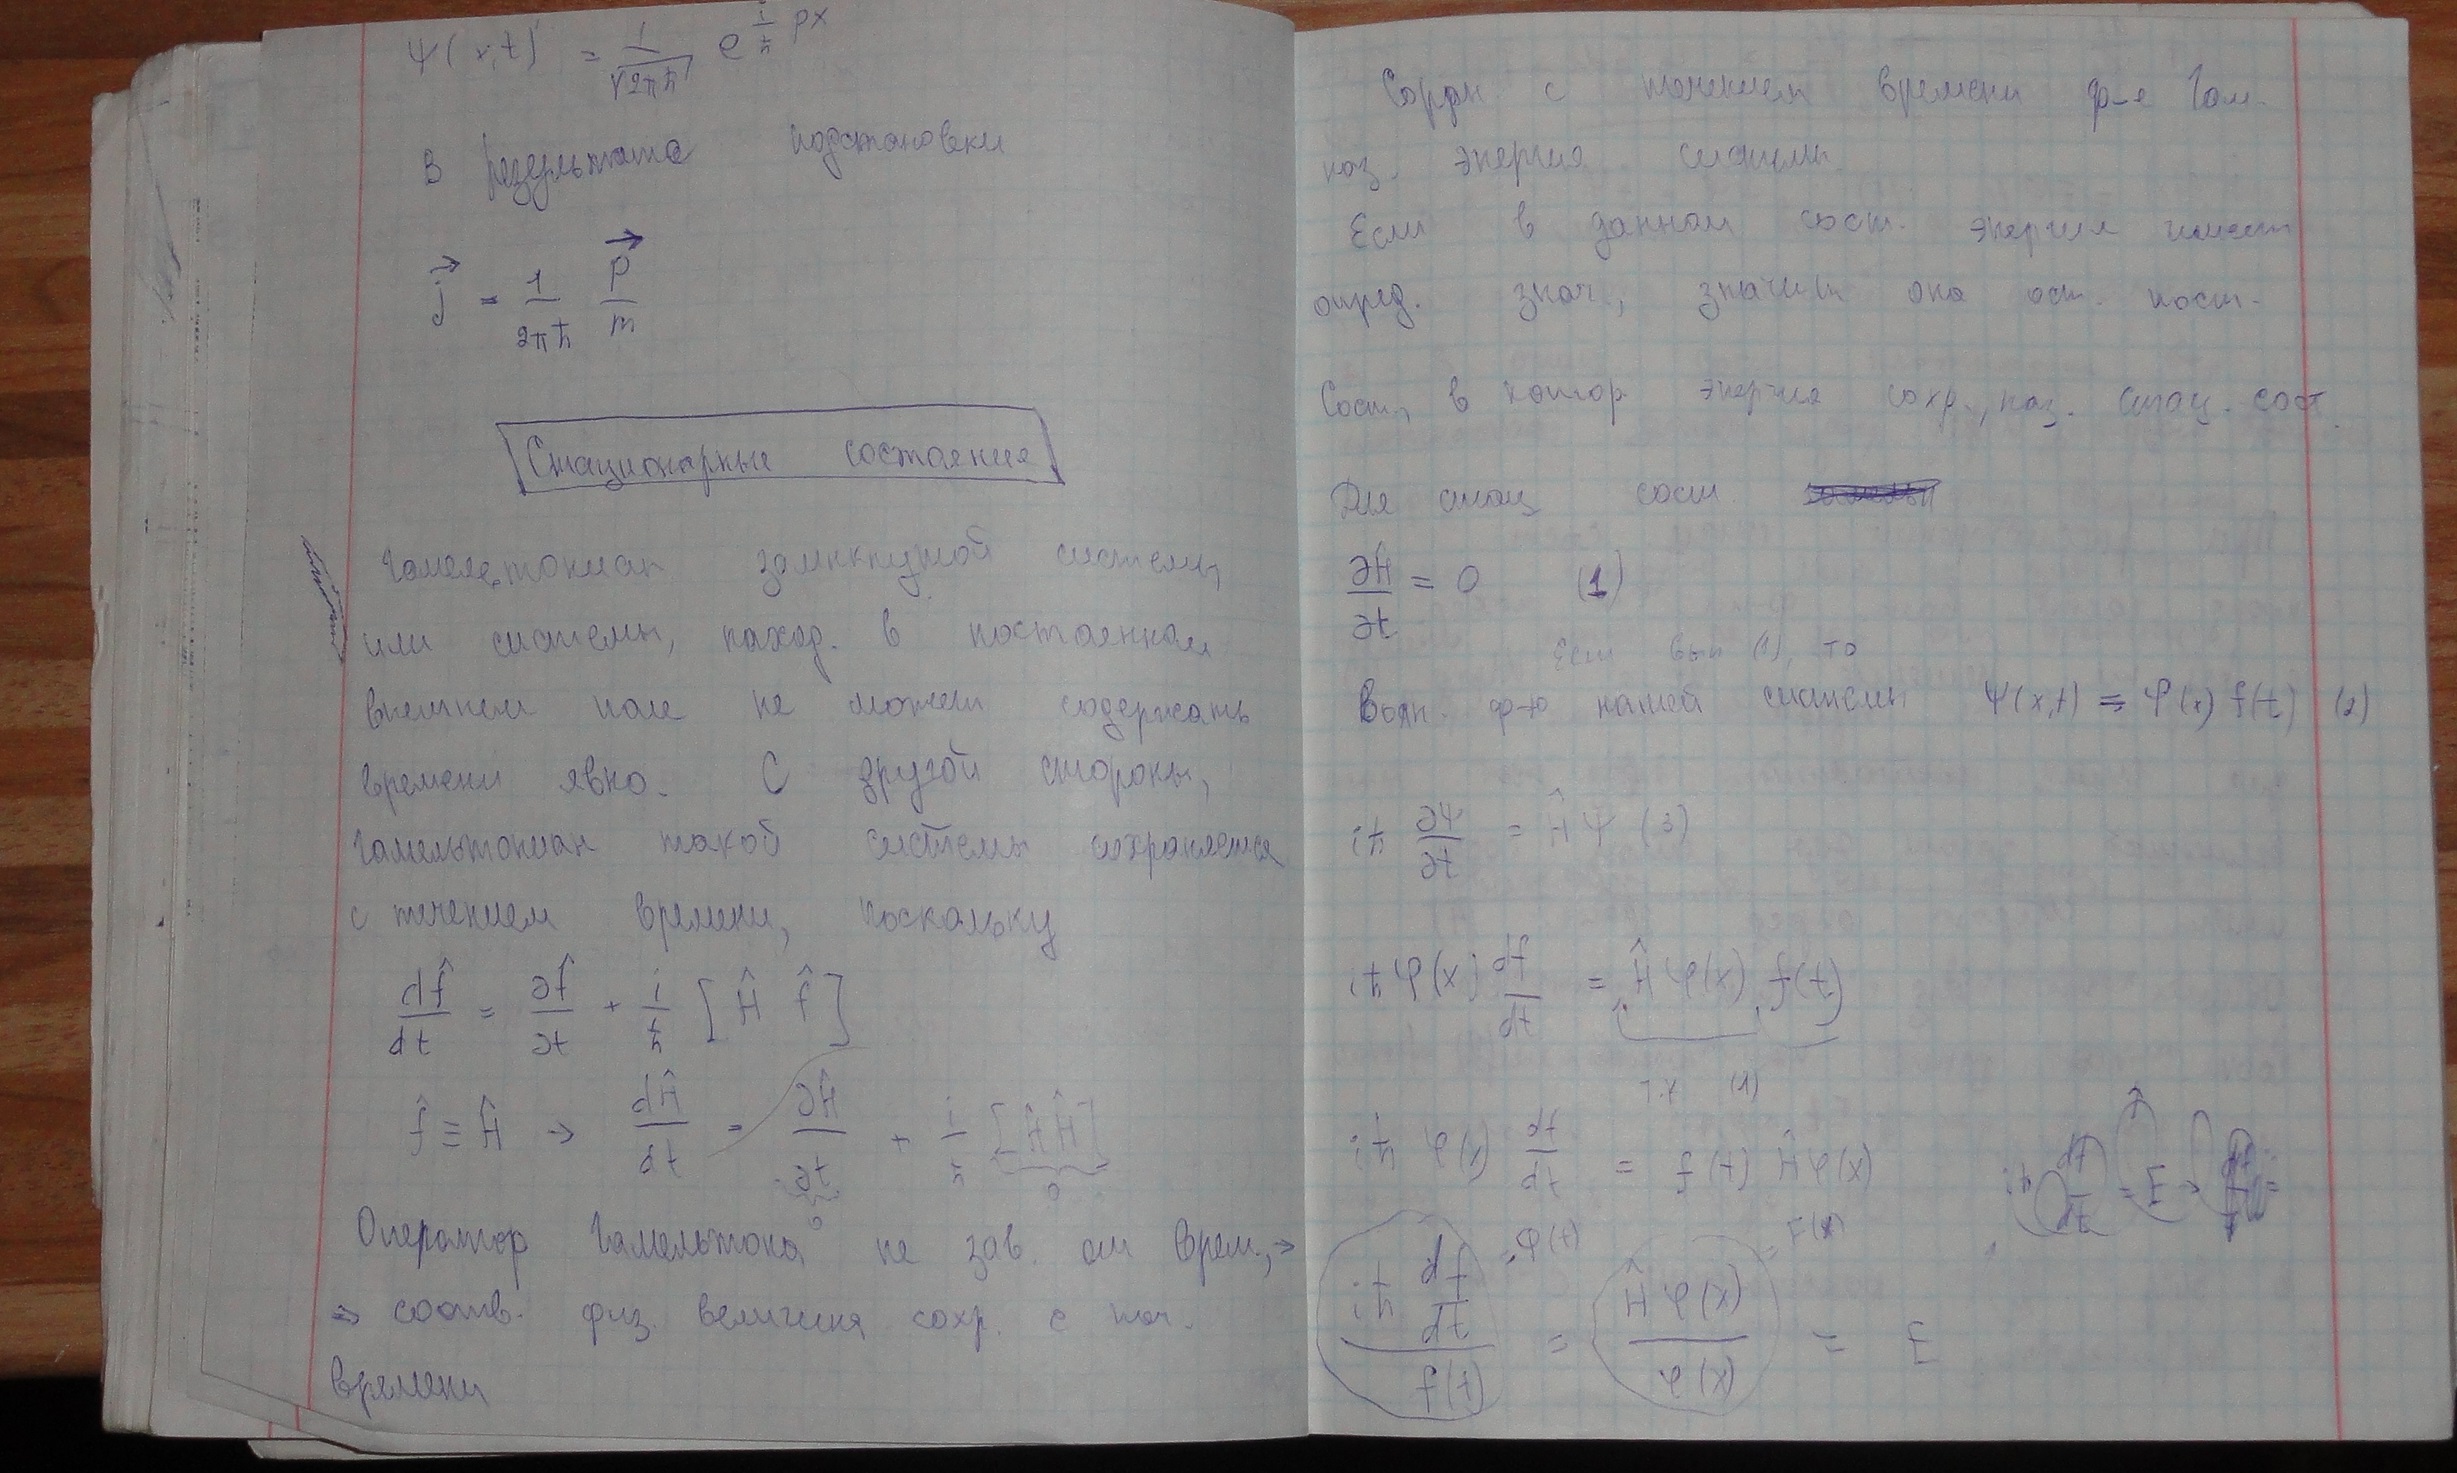 Ψ(x,t) = 1/√(2πħ) e^(i/ħ px)
В результате подстановки
j⃗ = 1/(2πħ) p⃗/m
Стационарные состояния
замкнутой системы,
или системы, наход. в постоянном
внешнем поле не может содержать
времени явно. С другой стороны,
гамельтониан такой системы сохраняется
с течением времени, поскольку
df̂/dt = ∂f̂/∂t + i/ħ [Ĥ f̂]
f̂ ≡ Ĥ → dĤ/dt = ∂Ĥ/∂t + i/ħ [Ĥ Ĥ]
0 0
Оператор Гамельтона не зав. от врем., →
⇒ соотв. физ. величина сохр. с теч.
времени
с течением времени ф-я Гам.
наз. энергия системы.
Если в данном сост. энергия имеет
опред. знач., значит она ост. пост.
Сост., в котор. энергия сохр., наз. стац. сост.
Для стац сост
∂Ĥ/∂t = 0 (1)
Если вып (1), то
Волн. ф-ю нашей системы Ψ(x,t) = φ(x) f(t) (2)
iħ ∂Ψ/∂t = ĤΨ (3)
iħ φ(x) df/dt = Ĥ φ(x) f(t)
т.к (1)
iħ φ(x) df/dt = f(t) Ĥφ(x)
iħ df/dt = E →
= Φ(t) = F(x)
iħ df/dt / f(t) = Ĥφ(x) / φ(x) = E